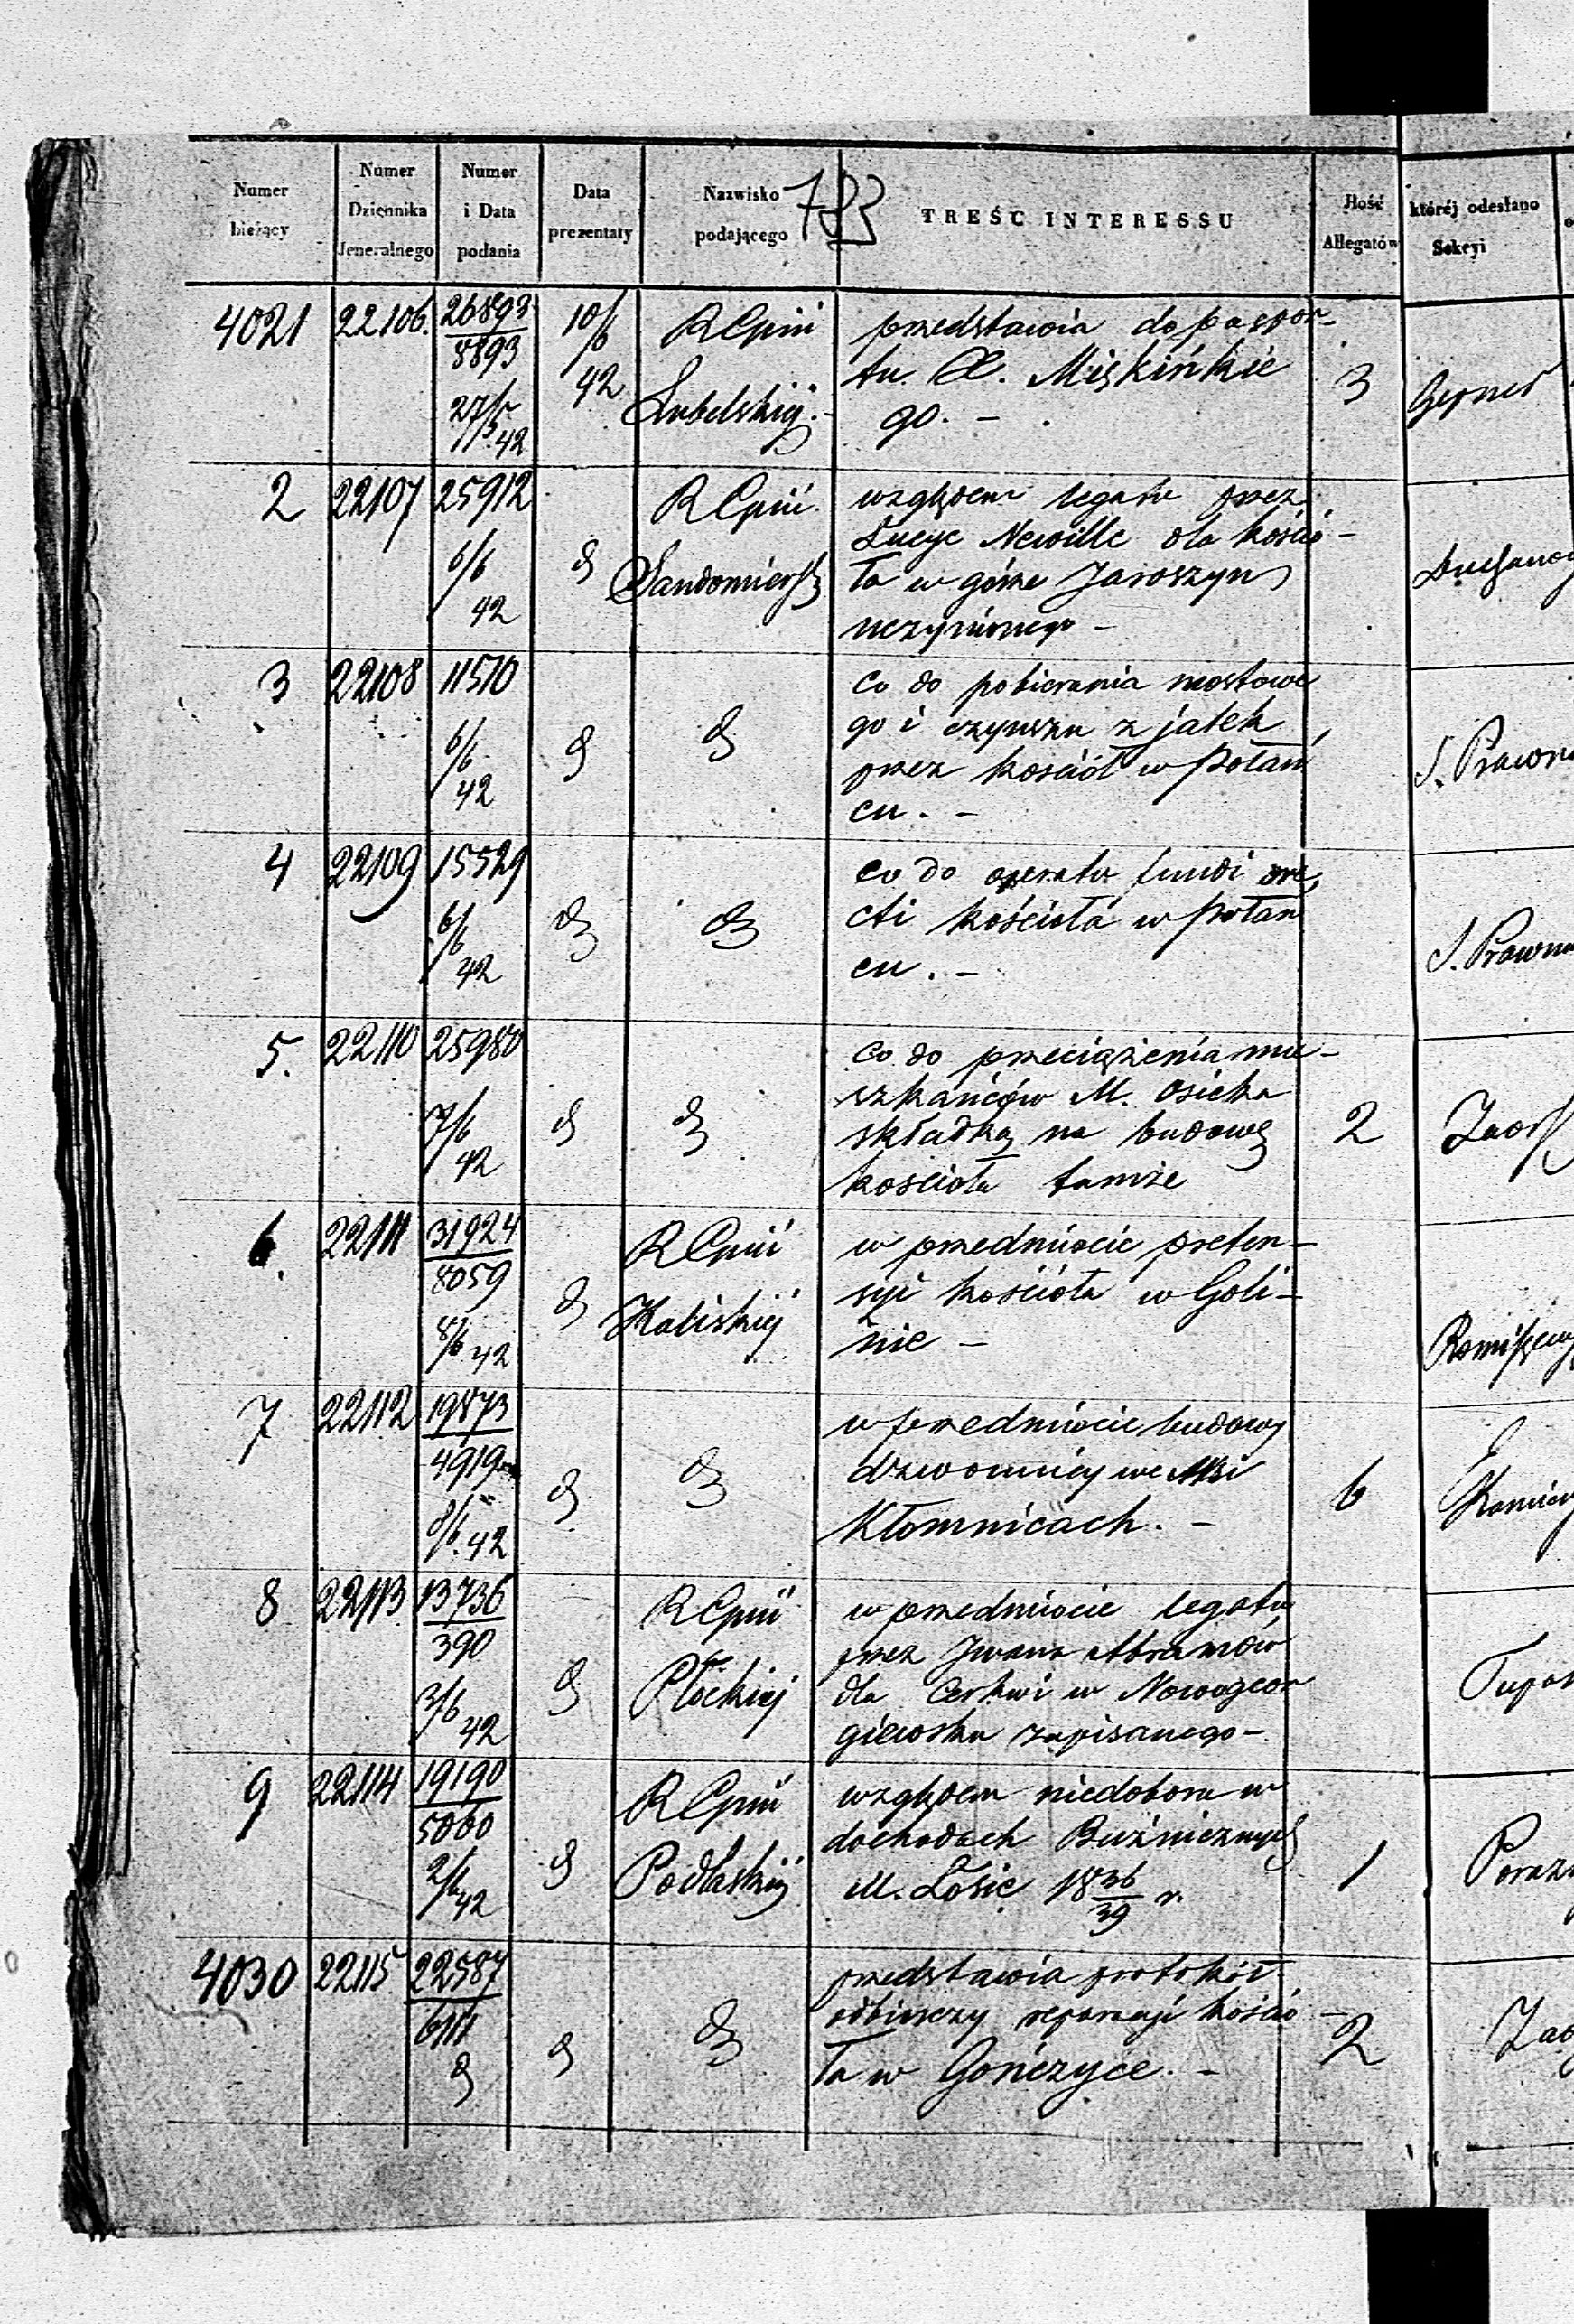 783
Numer bieżący | Numer Dziennika Jeneralnego | Numer i Data podania | Data prezentaty | Nazwisko podającego | TREŚĆ INTERESSU | Ilość Allegatów | któréj odesłano Sekcyi
4021 | 22106. | 26893/8893 27/5 42 | 10/6 42 | R Gpiii Lubelskiej. | przedstawia do paszpor-
tu. X. Miękińskie
go. - | 3 | Gepner
2 | 22107 | 25912 6/6 42 | d | R Gpiii Sandomiersk | względem legatu przez
Łucye Newille dla kościo-
ła w górze Jaroszyn
uczynionego -
3 | 22108 | 11510 6/6 42 | d | d | Co do pobierania mostowe
go i czynszu z jatek
przez kościół w Połań
cu. - | S. Prawn
4 | 22109 | 15529 6/6 42 | d | d | Co do operatu fundi
cti kościoła w Połań
cu. - | S. Prawn
5. | 22110 | 25980 7/6 42 | d | d | Co do przeciążenia mie-
szkańców M. Osieka
składką na budowę
kościoła tamże | 2
6. | 22111 | 31924/8059 8/6 42 | d | R Gpiii Kaliskiej | w przedmiocie preten-
syi kościoła w Goli-
nie -
7 | 22112 | 19873/4919 8/6 42 | d | d | w przedmiocie budowy
dzwonnicy we Wsi
Kłomnicach. - | 6
8 | 22113 | 13736/390 3/6 42 | d | R Gpiii Płockiej | w przedmiocie legatu
przez Iwana Abramów
dla Cerkwi w Nowogeor
giewsku zapisanego -
9 | 22114 | 19190/5060 2/6 42 | d | R Gpiii Podlaskiej | względem niedoboru w
dochodach Bużnicznych
M. Łosic 18 36/39 r. | 1
4030 | 22115 | 22587/6111 d | d | d | przedstawia protokół
odbiorczy reparacyi kościo-
ła w Gończyce. - | 2